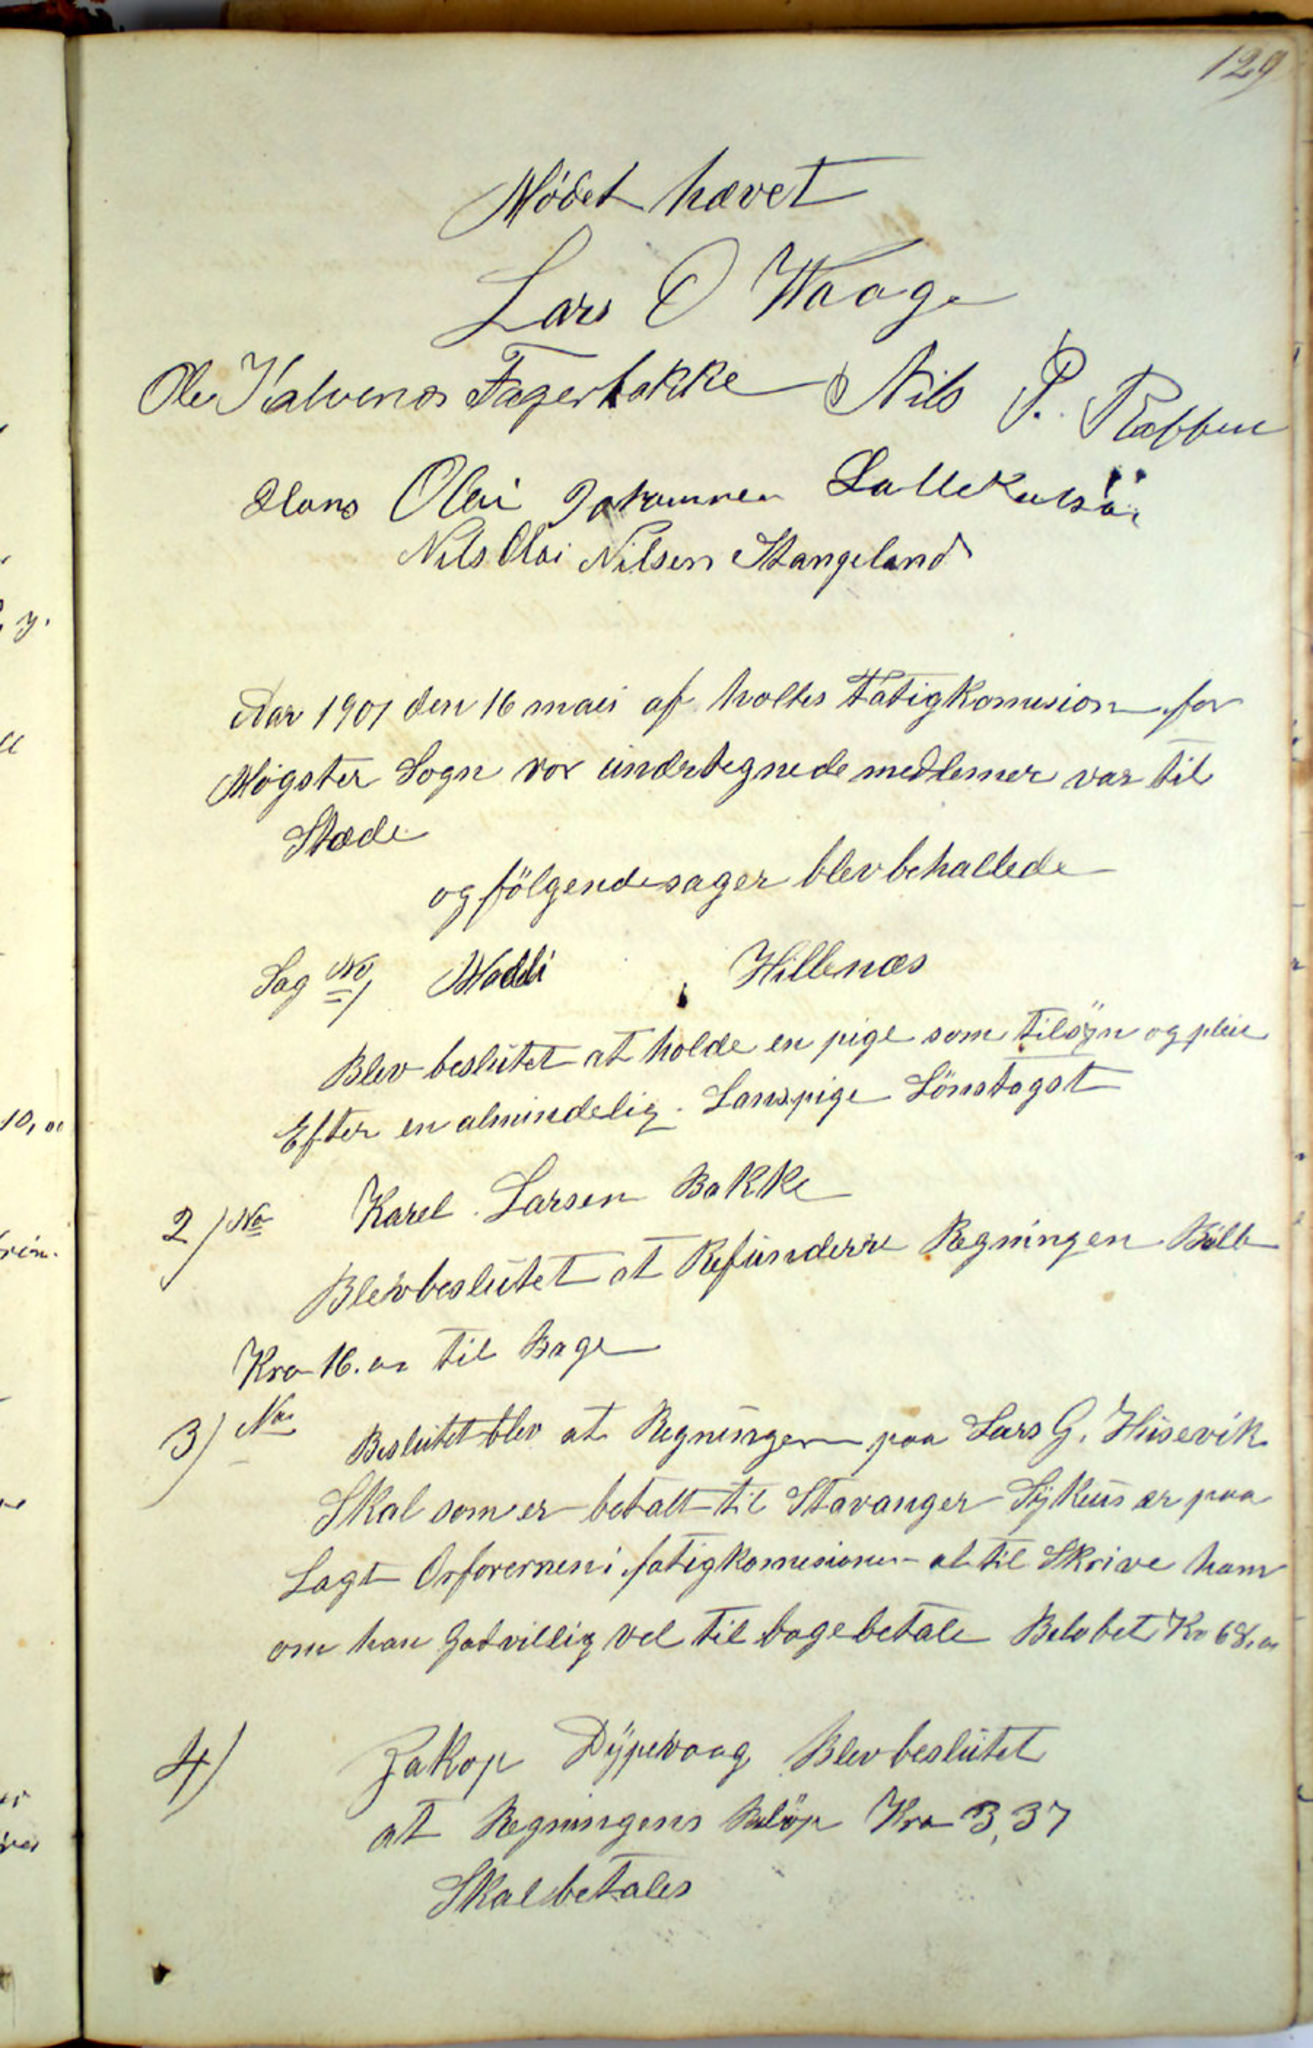 129
Mödet hævet
Lars O Waage
Ole Kalvenes Fagerbakke Nils P. Rabben
Hans Olai Johannesen
Nils Olai Nilsen Stangeland
Aar 1901 den 16 mai af holtes Fatigkomision for
Mögster Sogn vor undertegnede medlemer var til
Stæde
og fölgende sager blev behallede
Sag No 1 Maddi Hillenæs
Blev beslutet at holde en pige som tilsyn og pleie
Efter en almindelig Lanspige Lönstagst
2) No Karel Larsen Bakke
Blev beslutet at Refunderre Regningen
Kro 16.00 til Bage
3) No Beslutet blev at Regningen paa Lars G. Husevik
Skal som er betalt til Stavanger Sykeus er paa
Lagt Orforernen i fatigkomisionen at til Skrive ham
om han Godvillig vel til bage betale Belobet Kr 68,00
4) Jakop Dypevaag Blev beslutet
at Regningens Belöp Kro 3,37
Skal betales